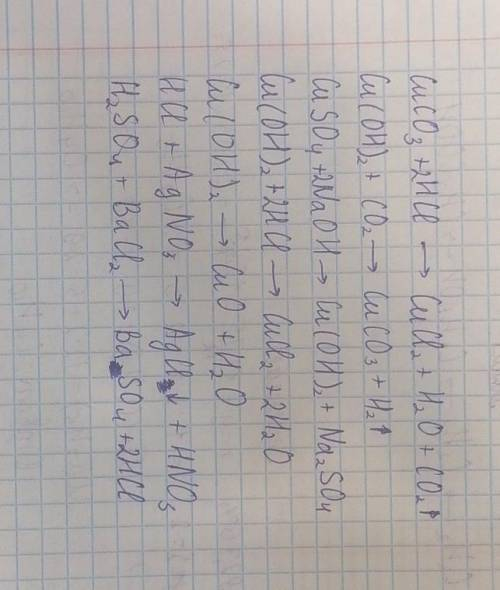 CuCO₃ + 2HCl → CuCl₂ + H₂O + CO₂↑
Cu(OH)₂ + CO₂ → CuCO₃ + H₂↑
CuSO₄ + 2NaOH → Cu(OH)₂ + Na₂SO₄
Cu(OH)₂ + 2HCl → CuCl₂ + 2H₂O
Cu(OH)₂ → CuO + H₂O
HCl + AgNO₃ → AgCl↓ + HNO₃
H₂SO₄ + BaCl₂ → BaSO₄ + 2HCl